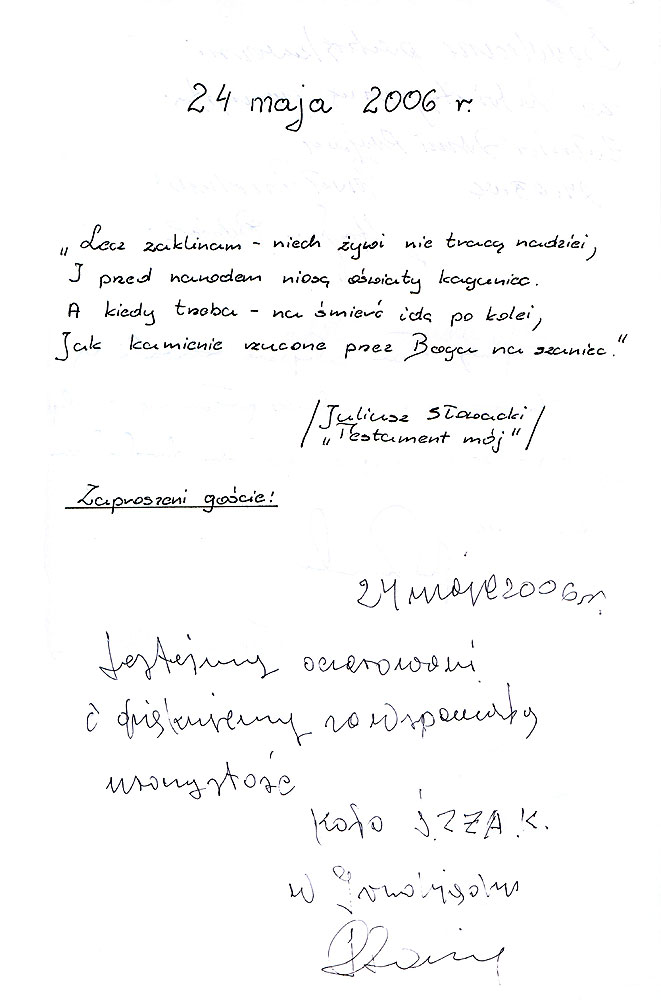 24 maja 2006 r.
„Lecz zaklinam - niech żywi nie tracą nadziei,
I przed narodem niosą oświaty kaganiec.
A kiedy trzeba - na śmierć idą po kolei,
Jak kamienie rzucone przez Boga na szaniec."
/Juliusz Słowacki
„Testament mój"/
Zaproszeni goście!
24 maja 2006 r.
Jesteśmy oczarowani
i dziękujemy za wspaniałą
uroczystość
Koło ŚZŻAK.
w